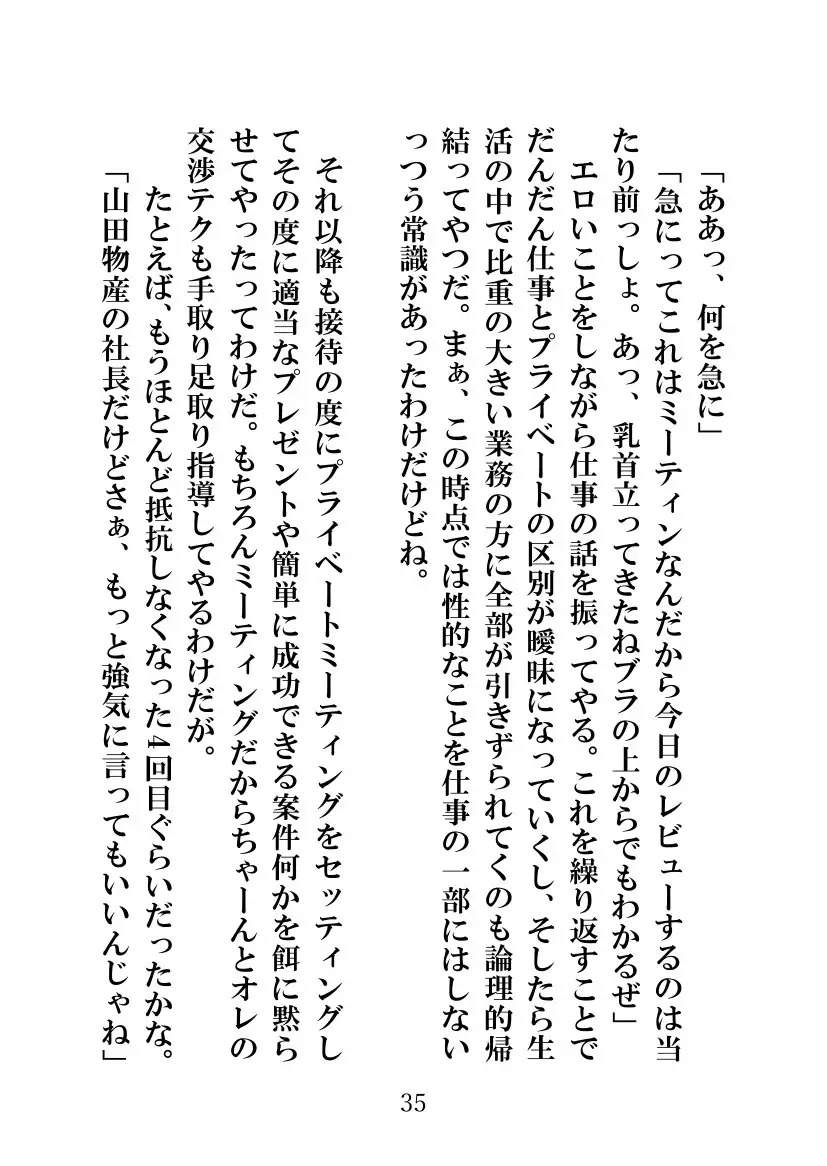 「ああっ、何を急に」
「急にってこれはミーティンなんだから今日のレビューするのは当
たり前っしょ。あっ、乳首立ってきたねブラの上からでもわかるぜ」
エロいことをしながら仕事の話を振ってやる。これを繰り返すことで
だんだん仕事とプライベートの区別が曖昧になっていくし、そしたら生
活の中で比重の大きい業務の方に全部が引きずられてくのも論理的帰
結ってやつだ。まぁ、この時点では性的なことを仕事の一部にはしない
っつう常識があったわけだけどね。
それ以降も接待の度にプライベートミーティングをセッティングし
てその度に適当なプレゼントや簡単に成功できる案件何かを餌に黙ら
せてやったってわけだ。もちろんミーティングだからちゃーんとオレの
交渉テクも手取り足取り指導してやるわけだが。
たとえば、もうほとんど抵抗しなくなった4回目ぐらいだったかな。
「山田物産の社長だけどさぁ、もっと強気に言ってもいいんじゃね」
35